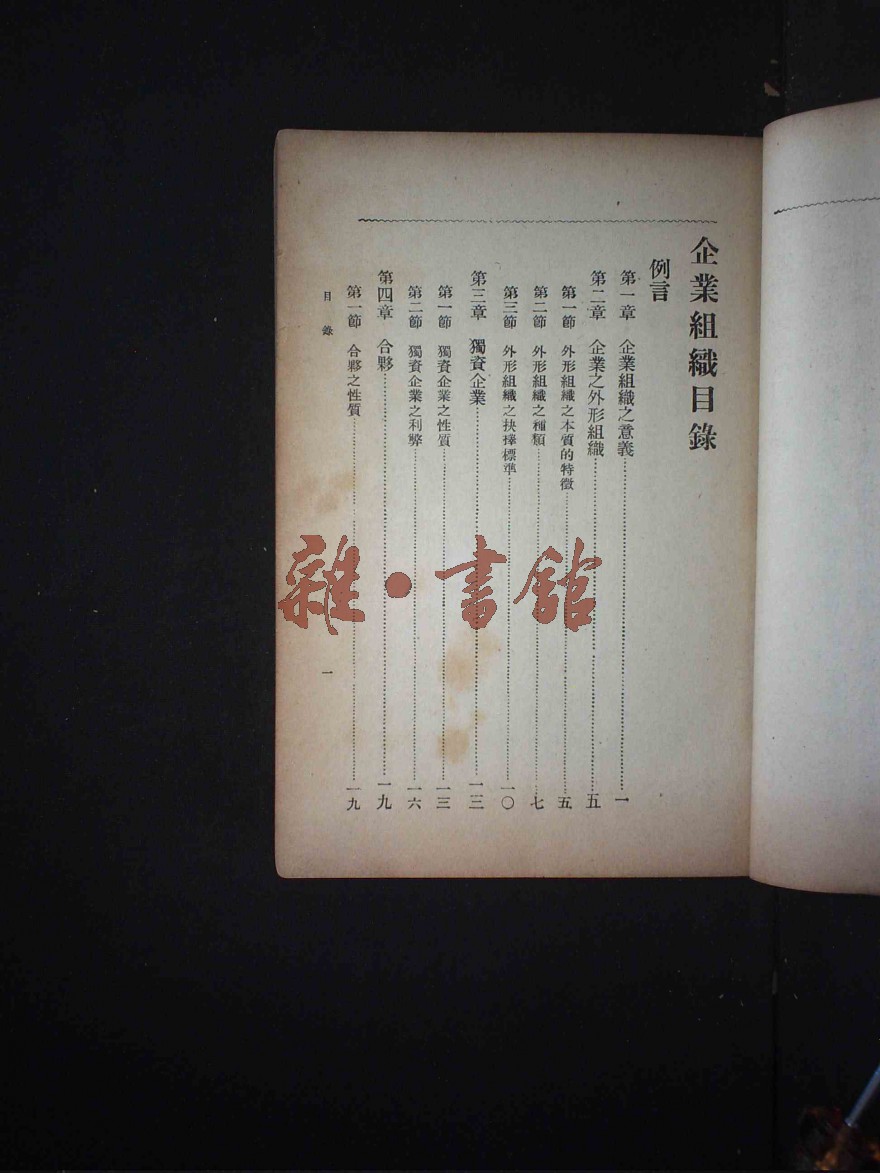 企業組織目錄
例言
第一章 企業組織之意義……一
第二章 企業之外形組織……五
第一節 外形組織之本質的特徵……五
第二節 外形組織之種類……七
第三節 外形組織之抉擇標準……一〇
第三章 獨資企業……一三
第一節 獨資企業之性質……一三
第二節 獨資企業之利弊……一六
第四章 合夥……一九
第一節 合夥之性質……一九
目錄 一
雜·書館